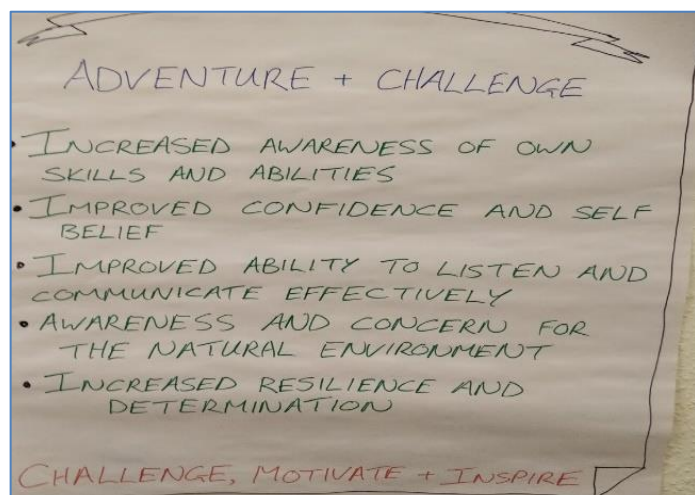 ADVENTURE + CHALLENGE
• INCREASED AWARENESS OF OWN
SKILLS AND ABILITIES
• IMPROVED CONFIDENCE AND SELF
BELIEF
• IMPROVED ABILITY TO LISTEN AND
COMMUNICATE EFFECTIVELY
• AWARENESS AND CONCERN FOR
THE NATURAL ENVIRONMENT
• INCREASED RESILIENCE AND
DETERMINATION
CHALLENGE, MOTIVATE + INSPIRE